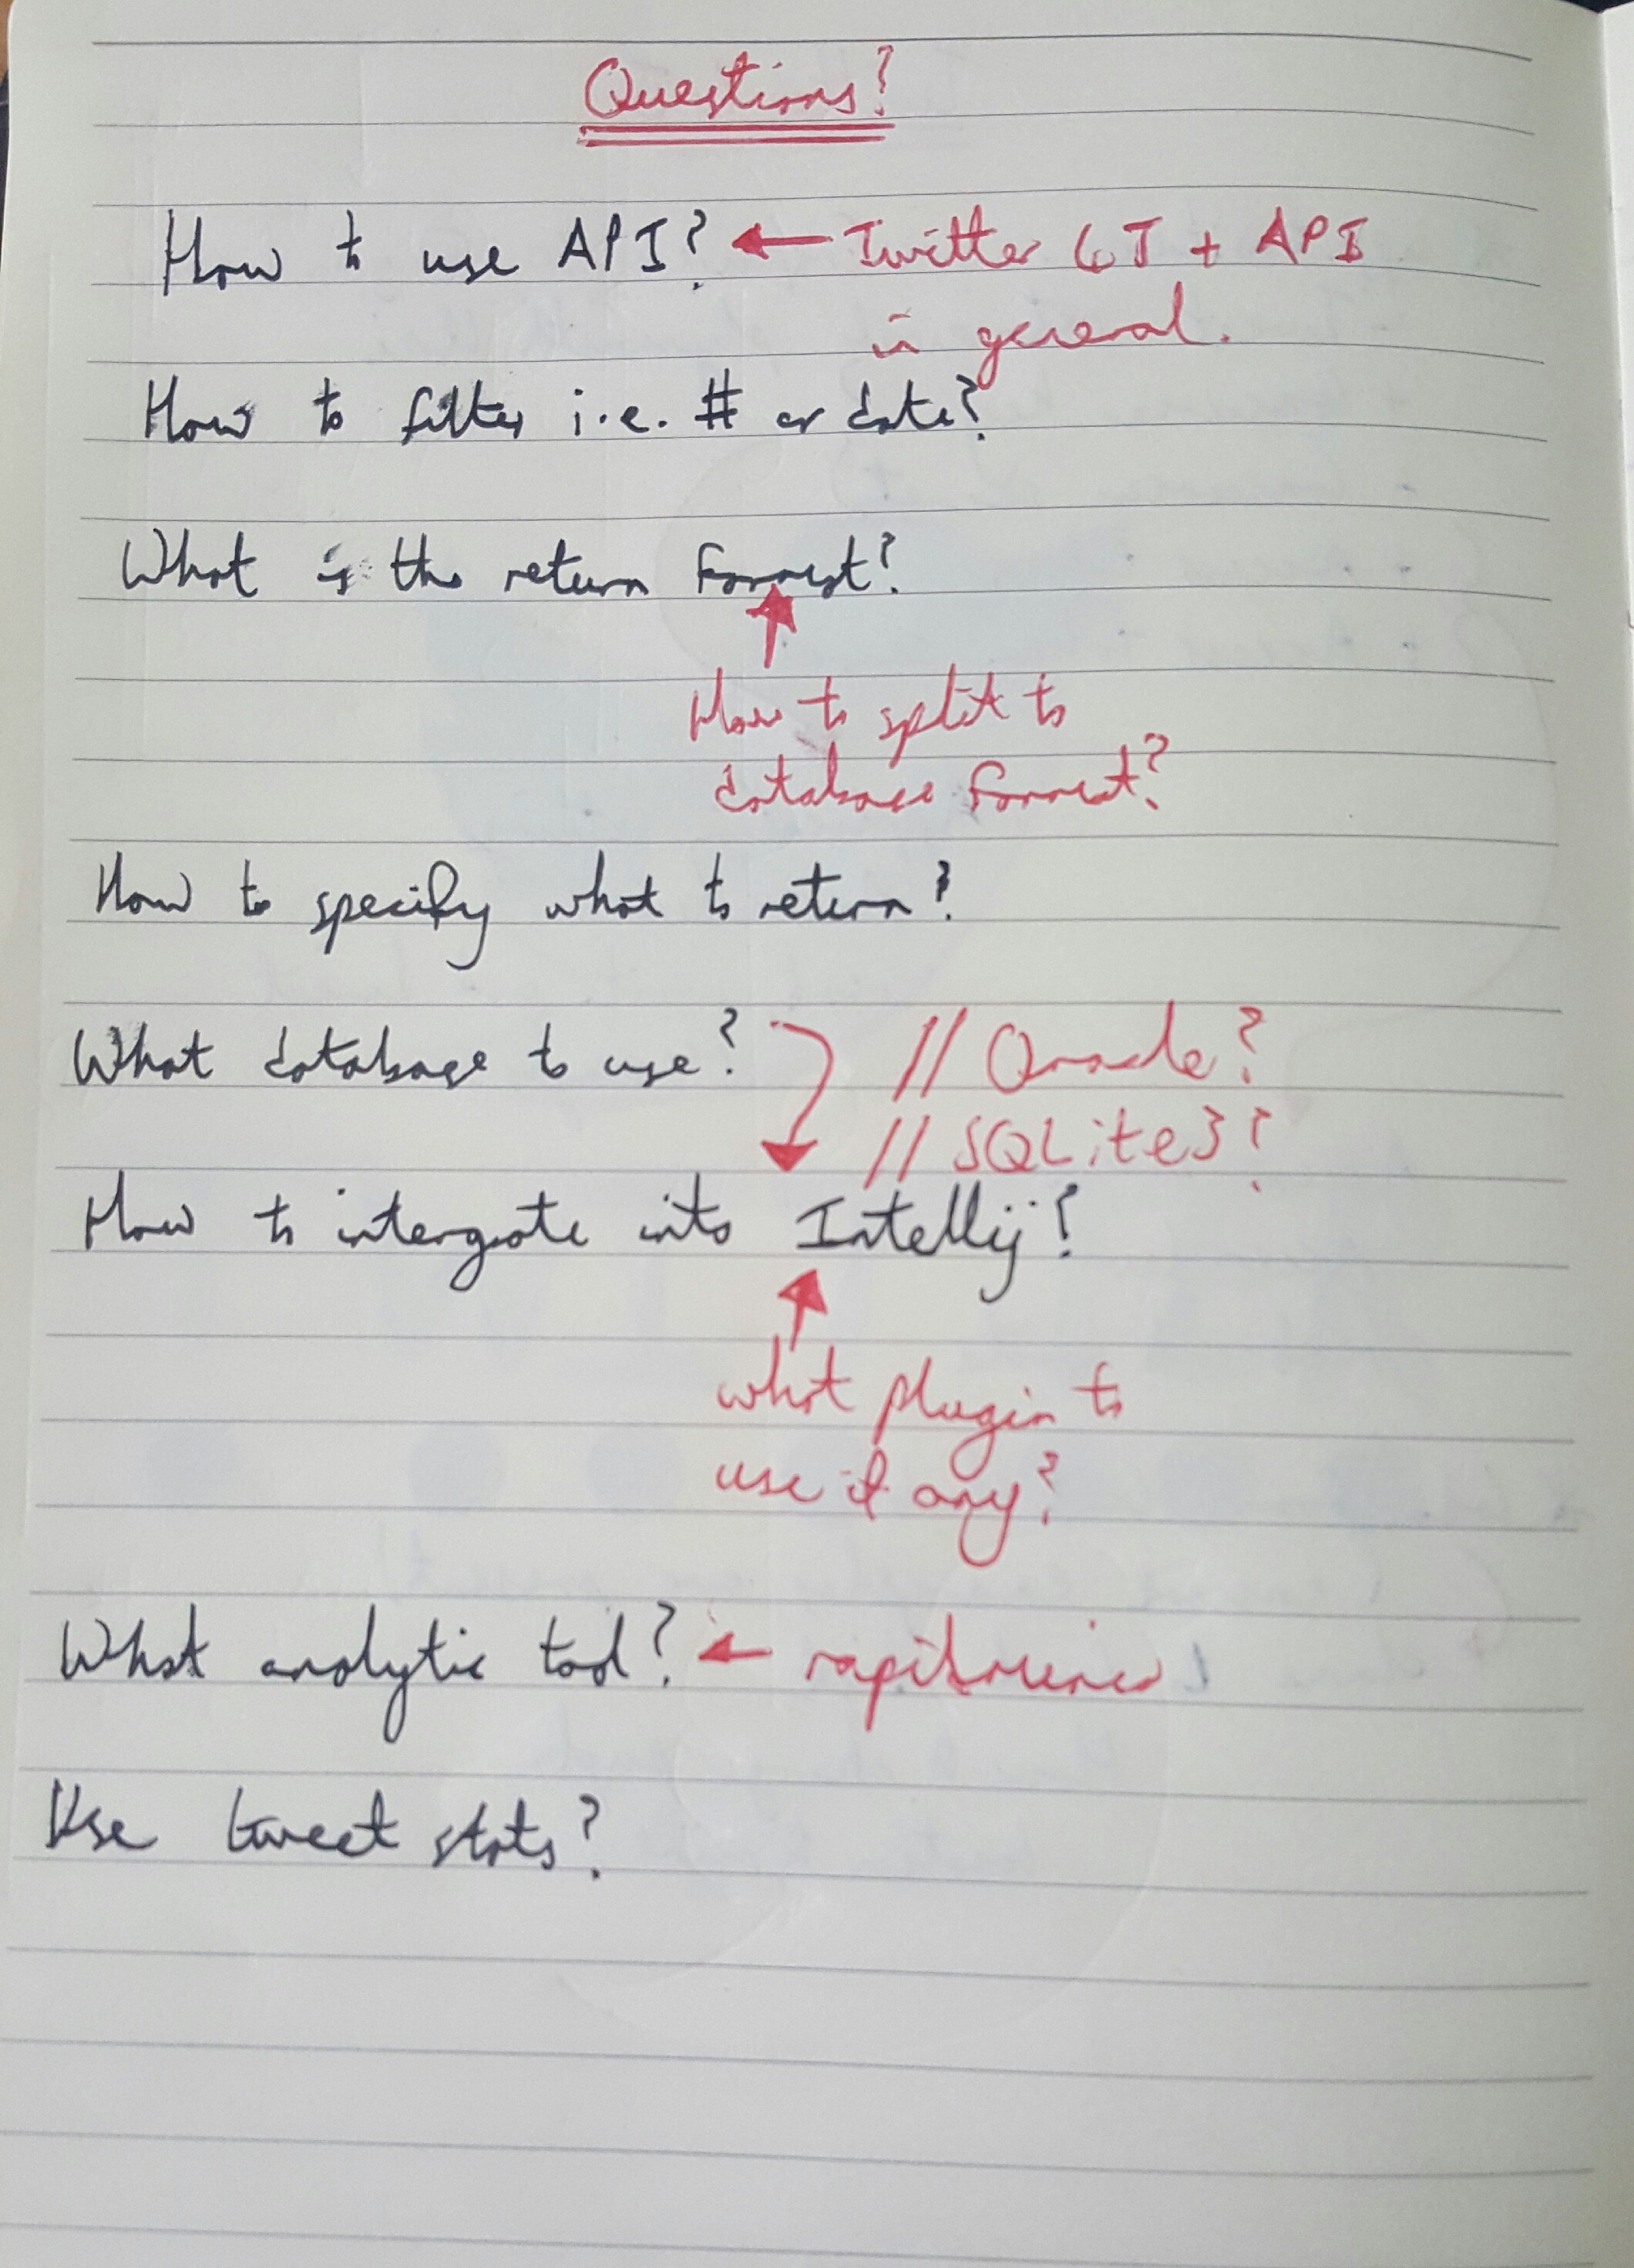 Questions?
How to use API? ← Twitter 4J + API
in general.
How to filter i.e. # or date?
What is the return format?
How to split to
database format?
How to specify what to return?
What database to use? // Oracle?
// SQLite3?
How to intergrate into Intellij?
what plugin to
use if any?
What analytic tool? ← rapidminer
Use tweet stats?